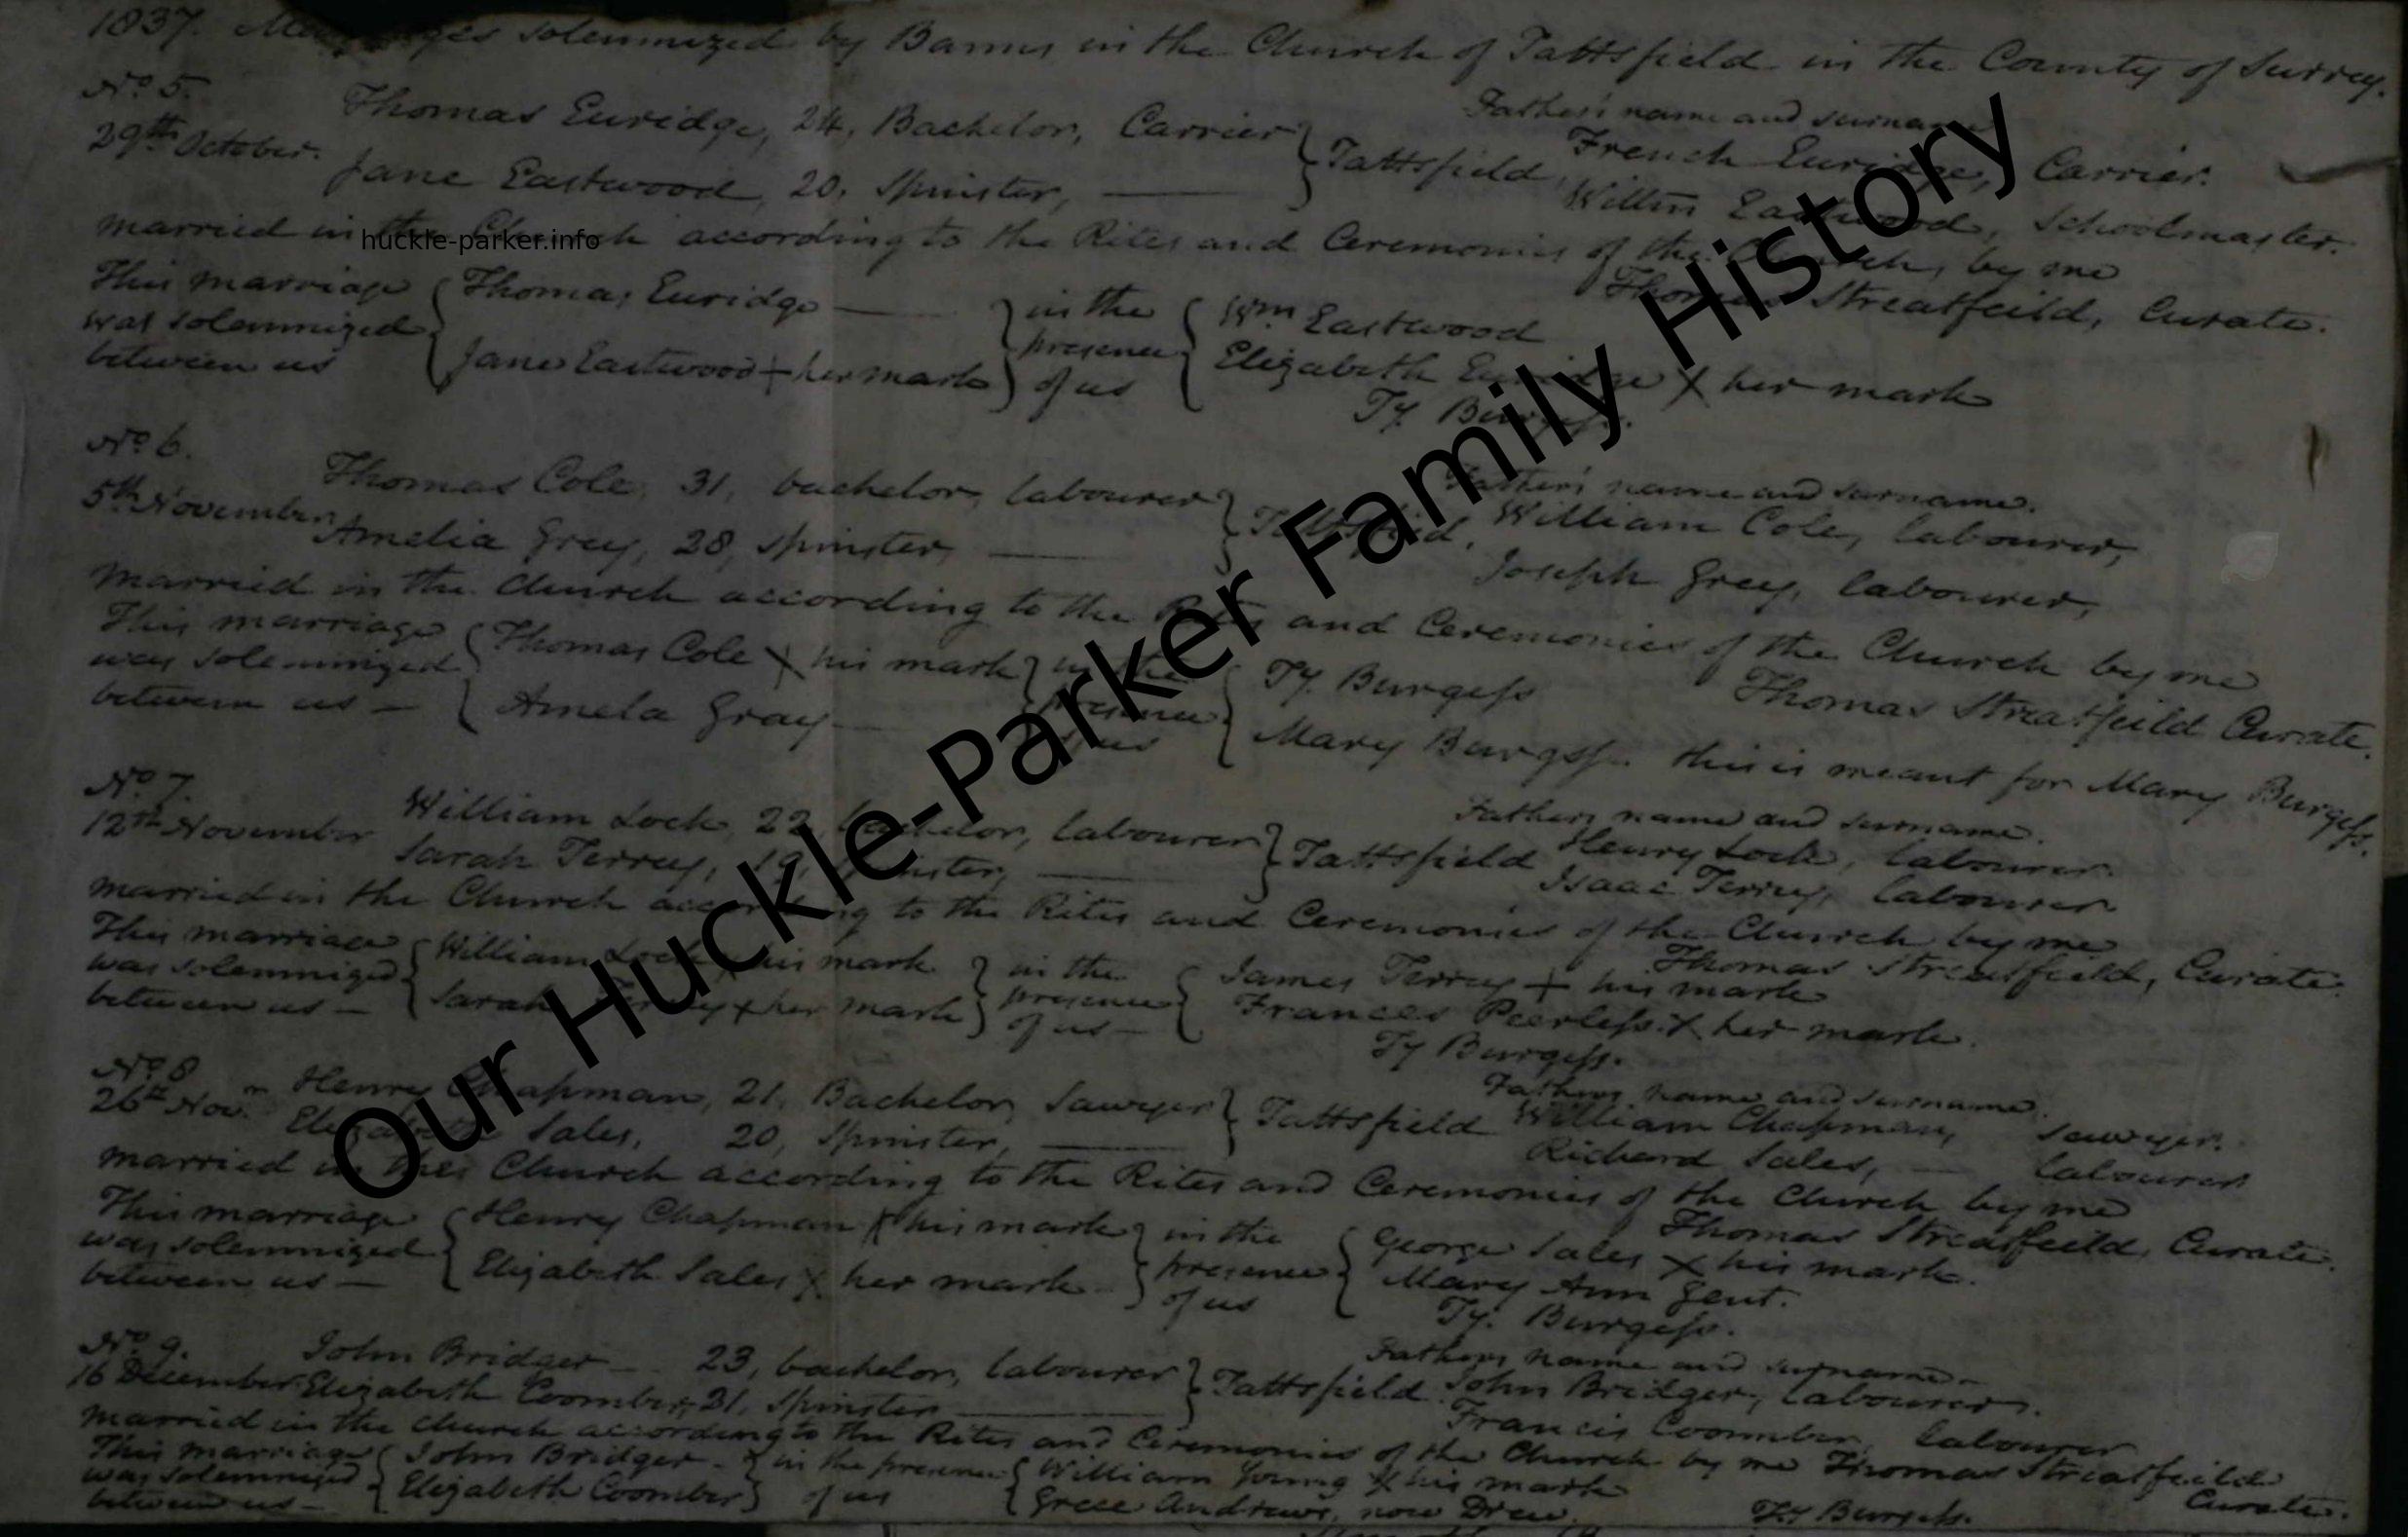 1837. Marriages solemnized by Banns in the Church of Tattsfield in the County of Surrey.
No. 5.
29th October.
Thomas Euridge, 24, Bachelor, Carrier
Jane Eastwood, 20, Spinster,
Tattsfield
Father's name and surname
French Euridge, Carrier.
Willm Eastwood, Schoolmaster.
married in the Church according to the Rites and Ceremonies of the Church, by me
Thomas Streatfeild, Curate.
This marriage was solemnized between us
Thomas Euridge
Jane Eastwood + her mark
in the presence of us
Wm Eastwood
Elizabeth Euridge X her mark
Ty. Burgess.
No. 6.
5th November
Thomas Cole, 31, bachelor, labourer
Amelia Grey, 28, spinster,
Tattsfield,
Father's name and surname.
William Cole, labourer,
Joseph Grey, labourer,
married in the Church according to the Rites and Ceremonies of the Church by me
Thomas Streatfeild Curate.
This marriage was solemnized between us —
Thomas Cole X his mark
Amela Gray
in the presence of us
Ty. Burgess
Mary Burgss. this is meant for Mary Burgess.
No. 7.
12th November
William Lock, 22, bachelor, labourer
Sarah Terrey, 19, spinster,
Tattsfield
Fathers name and surname.
Henry Lock, labourer.
Isaac Terrey, labourer
married in the Church according to the Rites and Ceremonies of the Church by me
Thomas Streatfeild, Curate.
This marriage was solemnized between us —
William Lock his mark
Sarah Terrey X her mark
in the presence of us —
James Terrey + his mark
Frances Peerless X her mark.
Ty Burgess.
No. 8
26th Nov.
Henry Chapman, 21, Bachelor, Sawyer
Elizabeth Sales, 20, Spinster,
Tattsfield
Fathers name and surname.
William Chapman, Sawyer.
Richard Sales, labourer
married in the Church according to the Rites and Ceremonies of the Church by me
Thomas Streatfeild, Curate.
This marriage was solemnized between us —
Henry Chapman X his mark
Elizabeth Sales X her mark
in the presence of us
George Sales X his mark.
Mary Ann Gent.
Ty. Burgess.
No. 9.
16 December
John Bridger — 23, bachelor, labourer
Elizabeth Coomber, 21, Spinster
Tattsfield
Fathers name and surname
John Bridger, labourer.
Francis Coomber, labourer
married in the church according to the Rites and Ceremonies of the Church by me Thomas Streatfeild
Curate.
This marriage was solemnized between us —
John Bridger
Elizabeth Coomber
in the presence of us
William Young X his mark
Grece Andrews, now Drew.
Ty Burgess.
huckle-parker.info
Our Huckle-Parker Family History